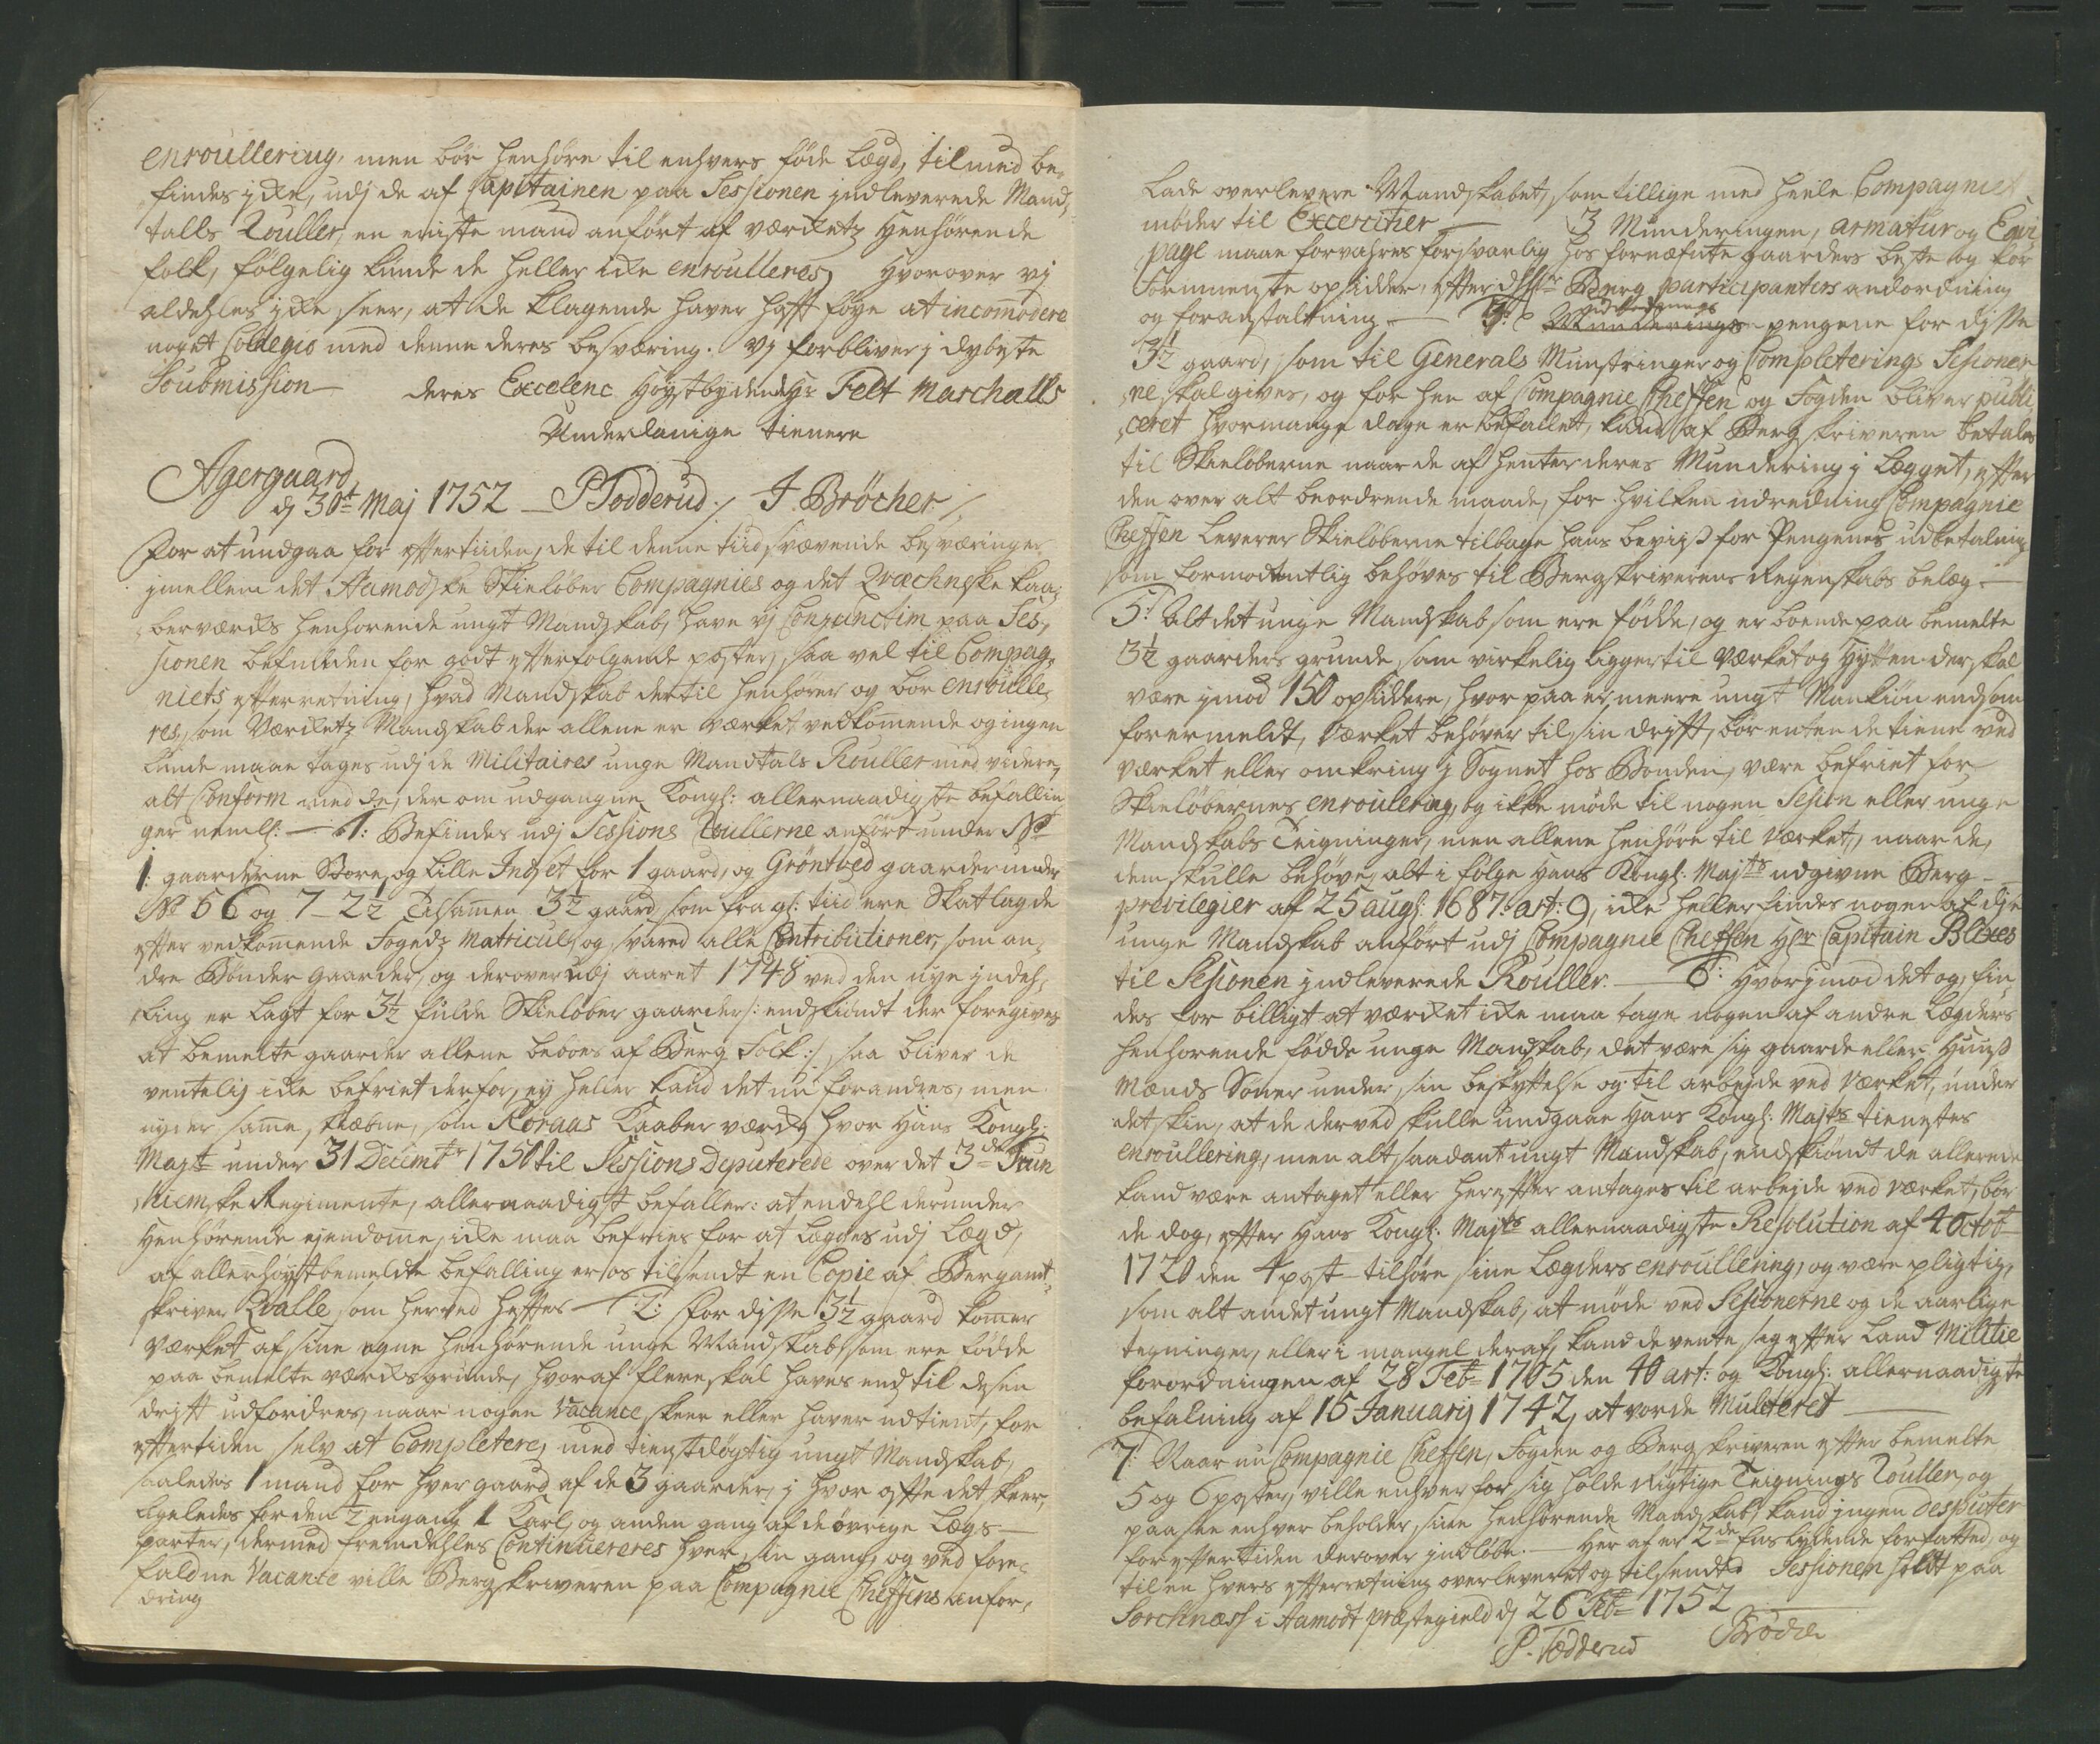 enroullering, men bør henhøre til enhvers føde Lægd, tilmed be-
findes icke, udj de af Capitainen paa Sessionen indleverede Mand-
talls Rouller, en eniste mand anført af værcketz Henhørende
folk, følgelig kunde de heller icke enroulleres, Hvorover vj
aldehles icke seer, at de klagende haver haft føye at incomodere
noget Collegio med denne deres besværing. Vj forbliver j dybeste
Soubmission — deres Excelenc Høystbydende Hr Felt Marchalls
Underdanige tienere
Agergaard,
d 30t Maj 1752 — P Todderud ./ J. Bröcher ./
For at undgaa for eftertiiden, de til denne tiid svævende besværinger
jmellem det Aamodske Skieløber Compagnies og det Qvæchneske kaa-
berværcks henhorende ungt Mandskab, have vj Conjunctim paa Ses-
sionen befunden for godt efterfølgende poster, saa vel til Compag-
niets efterretning, hvad Mandskab dertil henhører og bør enroulle-
res, som Værcketz Mandskab der allene er værket vedkommende og ingen
lunde maae tages udj de Militaires unge Mandtals Rouller med videre,
alt Conform med de, der om udgangne Kongl: allernaadigste befallin-
ger nemlig: — 1: Befindes udj Sessions Roullerne anført under No
1: gaarderne Store, og Lille Indset for 1 gaard, og Gröntved gaarder under
No 5 6 og 7 — 2½ Tilsammen 3½ gaard som fra gl: tiid ere Skatlagde
efter vedkommende Fogedz Matricul, og svared alle Contributioner, som an-
dre Bönder gaarder, og derover udj aaret 1748 ved den nye jndeh-
ling er lagt for 3½ fulde Skieløber gaarder /: endskiöndt der foregives
at bemelte gaarder allene beboes af Berg Folk :/ saa bliver de
ventelig icke befriet derfor, ey heller kand det nu forandres, men
nyder samme, skæbne, som Röraas Kaaber værck, hvor Hans Kongl:
Majt under 31 Decembr 1750 til Sessions Deputerede over det 3de Trun-
hiemske Regimente, allernaadigst befaller: at endehl derunder
Henhørende ejendomme, icke maa befries for at Lægges udj Lægd,
af allerhøystbemeldte befalling er os tilsendt en Copie af Bergamt-
skriver Qvalle som herved heftes — 2: For disse 3½ gaard kommer
Værket af sine egne henhørende unge Mandskab, som ere fødde
paa bemelte værcksgrunde, hvoraf flere skal haves end til desen
drift udfordres, naar nogen Vacance skeer eller haver udtient, for
eftertiden selv at Completere, med tienstdøgtig ungt Mandskab,
saaledes 1 mand for hver gaard af de 3 gaarder, j hvor ofte det skeer,
ligeledes for den ½ engang 1 Karl, og anden gang af de øvrige Lægs-
parter, dermed fremdehles Continueres hver sin gang, og ved fore-
faldne Vacante ville Bergskriveren paa Compagnie Cheffens anfor-
dring
Lade overlevere Mandskabet, som tillige med heele Compagniet
møder til Excercitier — 3 Munderingen, armatur og Equi-
page maae forvahres forsvarlig hos fornæfnte gaarders beste og for
Formueste opsidder, efter dHhr Berg participanters andordning
og foranstaltning — Munderings-pengene for disse
3½ gaard, som til Generals Munstringer og Completerings Sesioner-
ne skal gives, og for hen af Compagnie Cheffen og Fogden bliver publi-
ceret hvormange dage er befallet, kand af Bergskriveren betales
til Skieløberne naar de af henter deres Mundering j Lægget, efter
den over alt beordrende maade, for hvilken udredning Compagnie
Cheffen Leverer Skieløberne tilbage hans beviis for Pengenes udbetaling
som formodentlig behøves til Bergskriverens Regenskabs belæg. —
5: Alt det unge Mandskab som ere fødde, og er boende paa bemelte
3½ gaarders grunde som virkelig ligger til Værket og Hytten der skal
være jmod 150 opsiddere, hvor paa er meere ungt Mankiön end som
forermeldt, Værket behøver til sin drift, bør enten de tiene ved
værket eller omkring j Sognet hos Bonden, være befriet for
Skieløbernes enroulering, og ikke møde til nogen Sesion eller unge
Mandskabs Teigninger, men allene henhøre til Værket, naar de,
dem skulle behøve, alt i følge Hans Kongl: Majts udgivne Berg-
previlegier af 25 augl: 1687: art: 9, icke heller findes nogen af dje
unge Mandskab anført udj Compagnie Cheffen Hr Capitain Blixes
til Sesionen jndleverede Rouller. — 6: Hvorjmod det og, fin-
des for billigt at værcket icke maa tage nogen af andre Lægders
henhorende fødde unge Mandskab, det være sig gaarde eller Huus
mænds Sønner under sin beskyttelse og til arbejde ved Værket, under
det skin, at de derved skulle undgaae Hans Kongl: Majts tienestes
enroullering, men alt saadant ungt Mandskab, endskiöndt de allerede
kand være antaget eller herefter antages til arbejde ved værket, bør
de dog, efter Hans Kongl: Majts allernaadigste Resolution af 4 Octob
1720 den 4 post tilhøre sine Lægders enroullering, og være pligtig,
som alt andet ungt Mandskab, at møde ved Sesionerne og de aarlige
tegninger, eller i mangel deraf, kand de vente sig efter Land Militie
forordningen af 28 Feb 1705 den 40 art: og Kongl: allernaadigste
befalning af 15 Januarij 1742, at vorde Mulcteret —
7: Naar nu Compagnie Cheffen, Fogden og Bergskriveren efter bemelte
5 og 6 poster, ville enhver for sig holde Rigtige Teignings Rouller, og
paasee enhver beholder sine henhørende Mandskab, kand jngen Desputer
for eftertiden derover jndløbe. — Her af er 2de Eens Lydende forfatted, og
til en hvers efterretning overleveret og tilsendt. Sessionen holdt paa
Sorchnæss i Aamodt præstegield d 26 Feb 1752
P. Todderud Bröcher